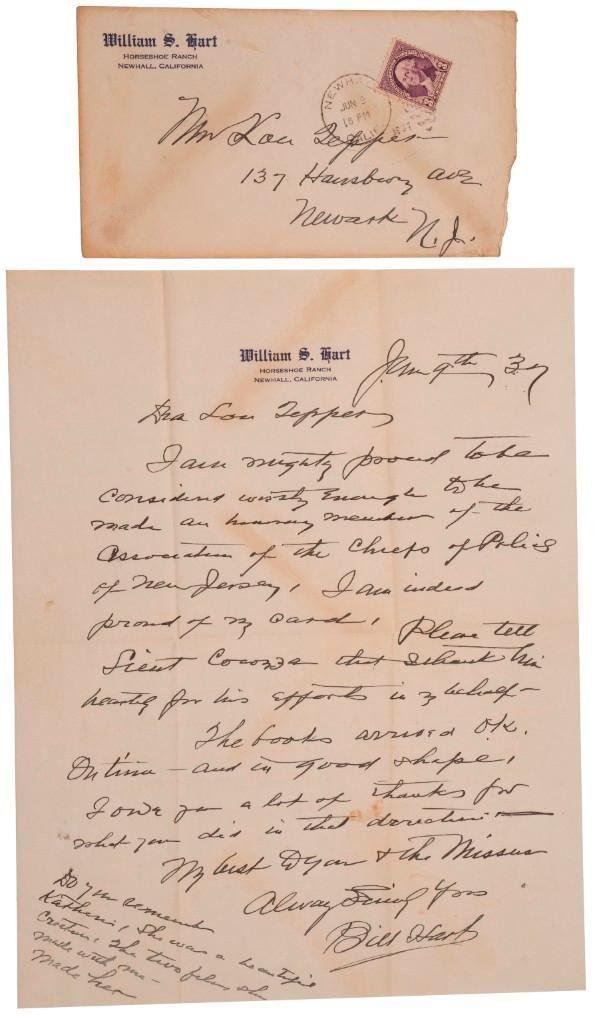 William S. Hart
HORSESHOE RANCH
NEWHALL, CALIFORNIA
NEWHA
JUN 9
PM
CALIF
1937
3
Mr Lou Tepper
137 Hansbury ave
Newark
N.J.
William S. Hart
HORSESHOE RANCH
NEWHALL, CALIFORNIA
June 9th, 37
Dear Lou Tepper,
I am mighty proud to be
considered worthy enough to be
made an honorary member of the
association of the Chiefs of Police
of New Jersey, I am indeed
proud of my card, Please tell
Lieut Cocozza that I thank him
heartily for his efforts in my behalf—
The books arrived O.K.
On time — and in good shape,
I owe you a lot of thanks for
what you did in that direction —
My best to you & the Missus
Always Sincerely Yours
Bill Hart
Do you remember
Katherine, she was a beautiful
creature, The two films she
made with me —
Made her